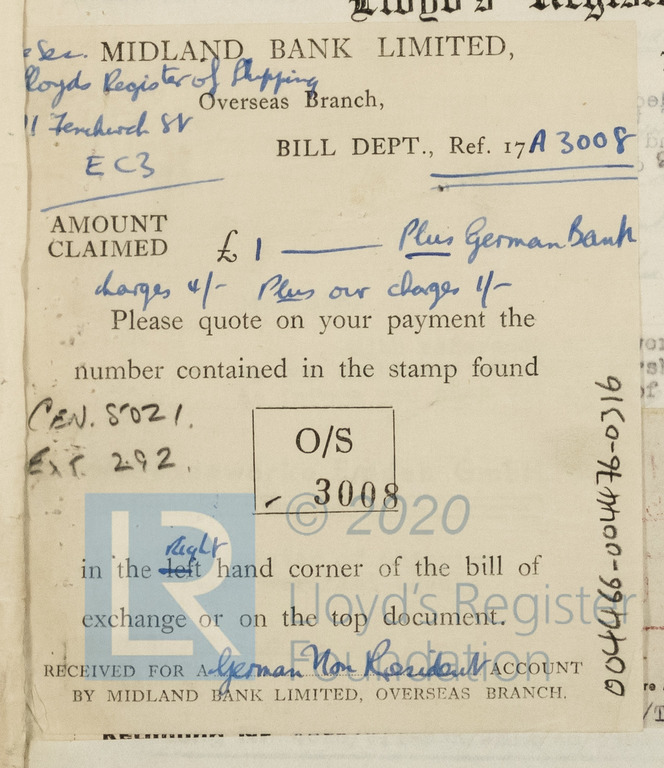 Lloyd's Register
Sec. MIDLAND BANK LIMITED,
Lloyds Register of Shipping
Overseas Branch,
71 Fenchurch St
BILL DEPT., Ref. 17 A 3008
EC3
AMOUNT
CLAIMED £ 1 — Plus German Bank
charges 4/- Plus our charges 1/-
Please quote on your payment the
number contained in the stamp found
CEN. 5021.
EXT. 292.
O/S
3008
© 2020
Right
in the left hand corner of the bill of
exchange or on the top document.
LR
Lloyd's Register
Foundation
RECEIVED FOR A German Non Resident ACCOUNT
BY MIDLAND BANK LIMITED, OVERSEAS BRANCH.